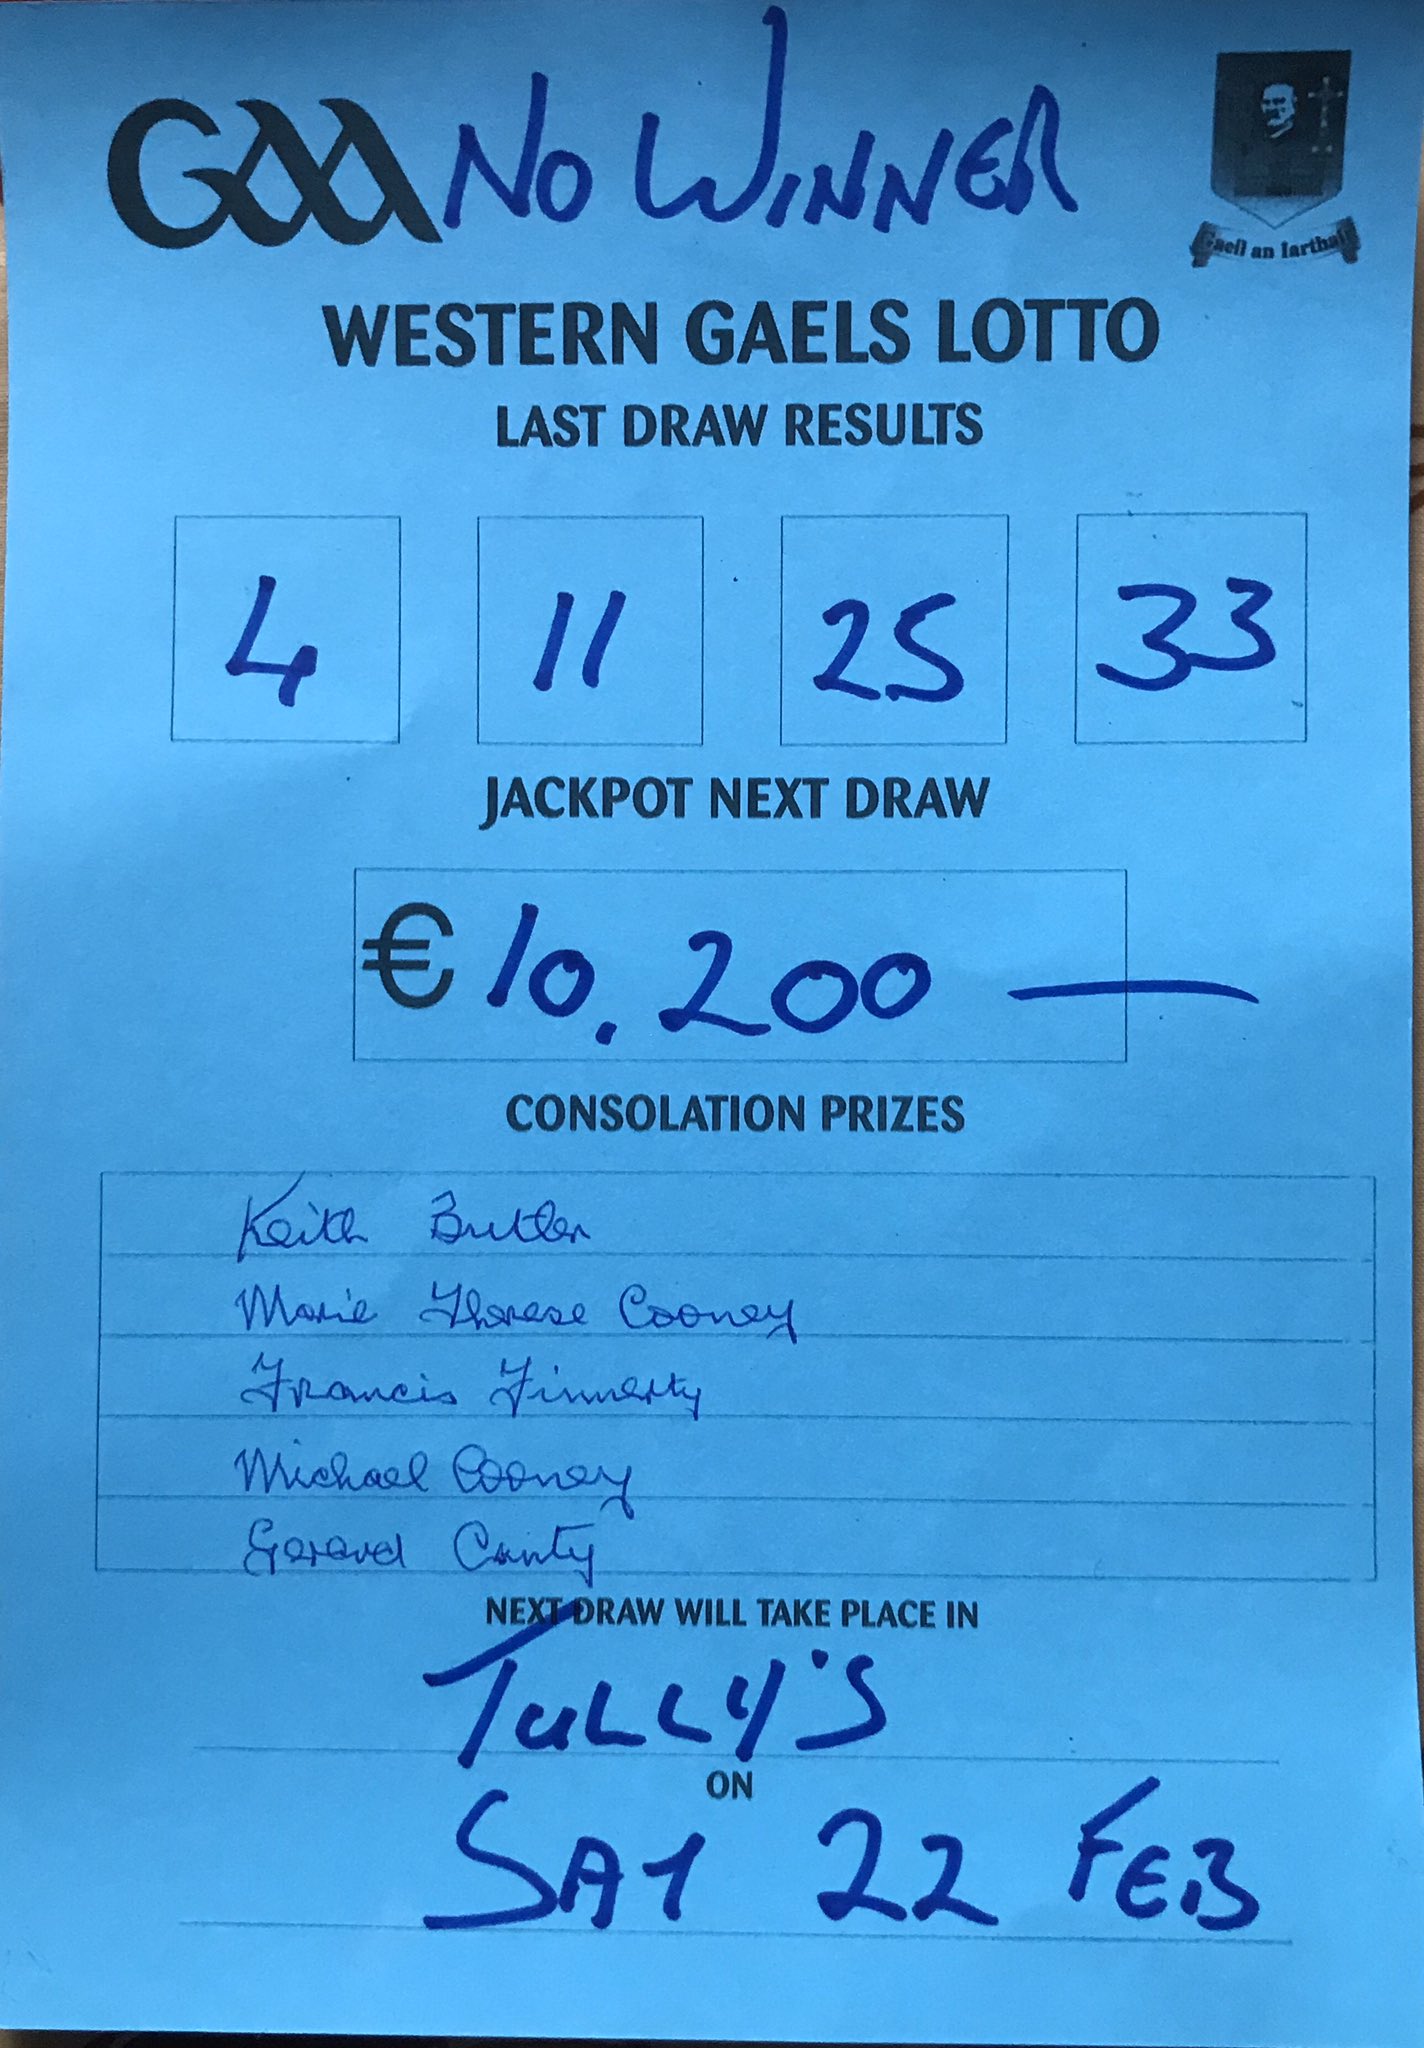 GAA NO WINNER
Gaeil an Iarthair
WESTERN GAELS LOTTO
LAST DRAW RESULTS
4 11 25 33
JACKPOT NEXT DRAW
€ 10.200 —
CONSOLATION PRIZES
Keith Butler
Marie Therese Cooney
Francis Finnerty
Michael Cooney
Gerard Canty
NEXT DRAW WILL TAKE PLACE IN
TULLY'S
ON
SAT 22 FEB